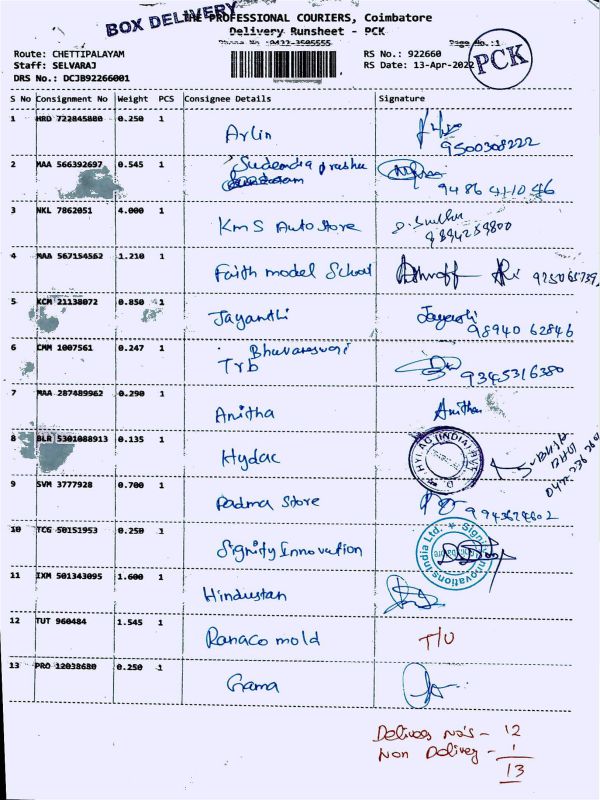 BOX DELIVERY
THE PROFESSIONAL COURIERS, Coimbatore
Delivery Runsheet - PCK
Phone No :0422-3505555 Page No.:1
Route: CHETTIPALAYAM RS No.: 922660
Staff: SELVARAJ RS Date: 13-Apr-2022
PCK
DRS No.: DCJB92266001
S No Consignment No Weight PCS Consignee Details Signature
1 HRD 722845880 0.250 1 Arlin 9500308222
2 MAA 566392697 0.545 1 94864
3 NKL 7862051 4.000 1 KmS Auto Store 9894259800
4 MAA 567154562 1.210 1 Faith model School
5 KCM 21138072 0.850 1 Jayanthi Jayanthi 98940 62846
6 CMM 1007561 0.247 1 Trb Bhuvaneswari 9345316380
7 MAA 287489962 0.290 1 Anitha Anitha
8 BLR 5301088913 0.135 1 Hydac
9 SVM 3777928 0.700 1 Padma Store
10 TCG 50151953 0.250 1 Signify Innovation Signify Innovations India Ltd.
11 IXM 501343095 1.600 1 Hindustan
12 TUT 960484 1.545 1 Ranaco mold T/U
13 PRO 12038680 0.250 1 Gama
Delivery No's - 12
Non Delivery - 1
13